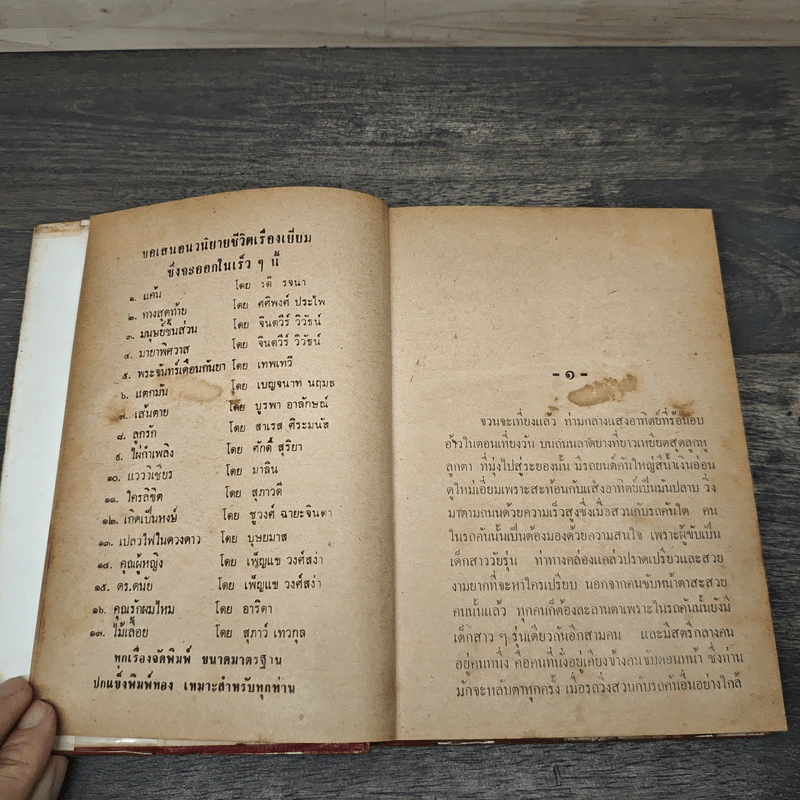 ขอเสนอนวนิยายชีวิตเรื่องเยี่ยม
ซึ่งจะออกในเร็ว ๆ นี้
๑. แค้น โดย รตี รจนา
๒. ทางสุดท้าย โดย ศศิพงศ์ ประไพ
๓. มนุษย์ชิ้นส่วน โดย จินตวีร์ วิวัธน์
๔. มายาพิศวาส โดย จินตวีร์ วิวัธน์
๕. พระจันทร์เดือนกันยา โดย เทพเทวี
๖. แตกมัน โดย เบญจนาท นฤมล
๗. เส้นตาย โดย บูรพา อาลักษณ์
๘. ลูกรัก โดย สาเรส ศิระมนัส
๙. ไผ่กำเพลิง โดย ศักดิ์ สุริยา
๑๐. แวววิเชียร โดย มาลิน
๑๑. ใครลิขิต โดย สุภาวดี
๑๒. เกิดเป็นหงษ์ โดย ชูวงศ์ ฉายะจินดา
๑๓. เปลวไฟในดวงดาว โดย บุษยมาส
๑๔. คุณผู้หญิง โดย เพ็ญแข วงศ์สง่า
๑๕. ดร.ดนัย โดย เพ็ญแข วงศ์สง่า
๑๖. คุณรักผมไหม โดย อาริตา
๑๗. ไม้เลื้อย โดย สุภาว์ เทวกุล
ทุกเรื่องจัดพิมพ์ ขนาดมาตรฐาน
ปกแข็งพิมพ์ทอง เหมาะสำหรับทุกท่าน
-๑-
จวนจะเที่ยงแล้ว ท่ามกลางแสงอาทิตย์ที่ร้อนอบ
อ้าวในตอนเที่ยงวัน บนถนนลาดยางที่ยาวเหยียดสุดลูกหู
ลูกตา ที่มุ่งไปสู่ระยองนั้น มีรถยนต์คันใหญ่สีน้ำเงินอ่อน
ดูใหม่เอี่ยมเพราะสะท้อนกับแสงอาทิตย์เป็นมันปลาบ วิ่ง
มาตามถนนด้วยความเร็วสูงซึ่งเมื่อสวนกับรถคันใด คน
ในรถคันนั้นเป็นต้องมองด้วยความสนใจ เพราะผู้ขับเป็น
เด็กสาววัยรุ่น ท่าทางคล่องแคล่วปราดเปรียวและสวย
งามยากที่จะหาใครเปรียบ นอกจากคนขับหน้าตาสะสวย
คนนั้นแล้ว ทุกคนก็ต้องละลานตาเพราะในรถคันนั้นยังมี
เด็กสาว ๆ รุ่นเดียวกันอีกสามคน และมีสตรีกลางคน
อยู่คนหนึ่ง คือคนที่นั่งอยู่เคียงข้างคนขับตอนหน้า ซึ่งท่าน
มักจะหลับตาทุกครั้ง เมื่อรถวิ่งสวนกับรถคันอื่นอย่างใกล้